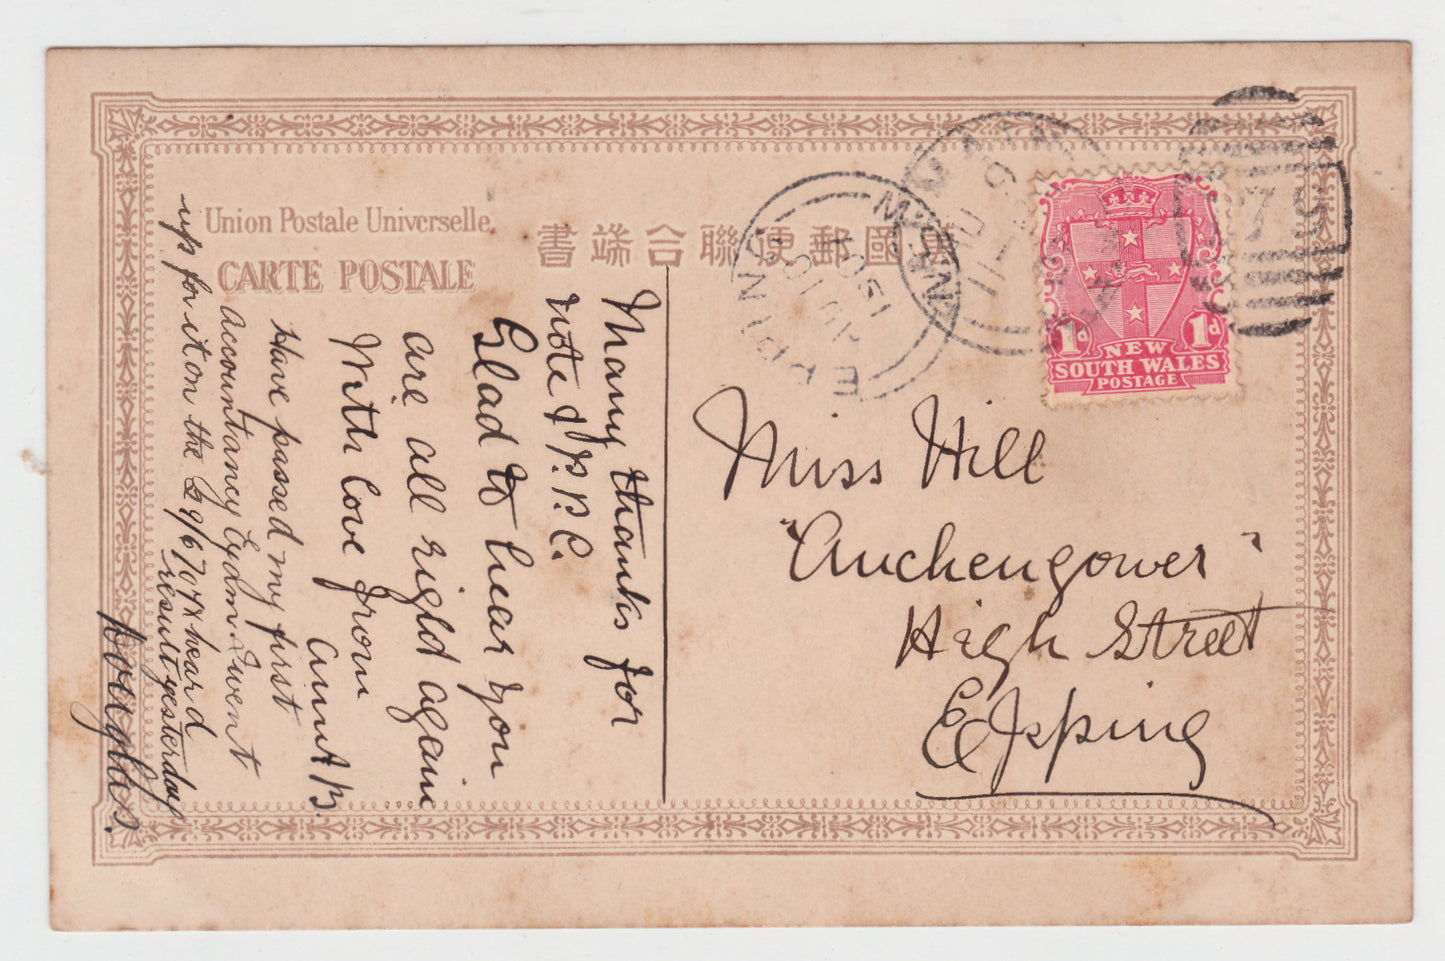 Union Postale Universelle
CARTE POSTALE
書端合聯便郵國萬
Many thanks for
note & P.P.C.
Glad to hear you
are all right again
With love from
Aunt B.
Have passed my first
Accountancy Exam. I went
up for it on the 29/6/07 & heard
result yesterday
Douglas.
Miss Hill
"Auchengower"
High Street
Epping
NEW
SOUTH WALES
POSTAGE
1d
1d
EPPING
N.S.W
79